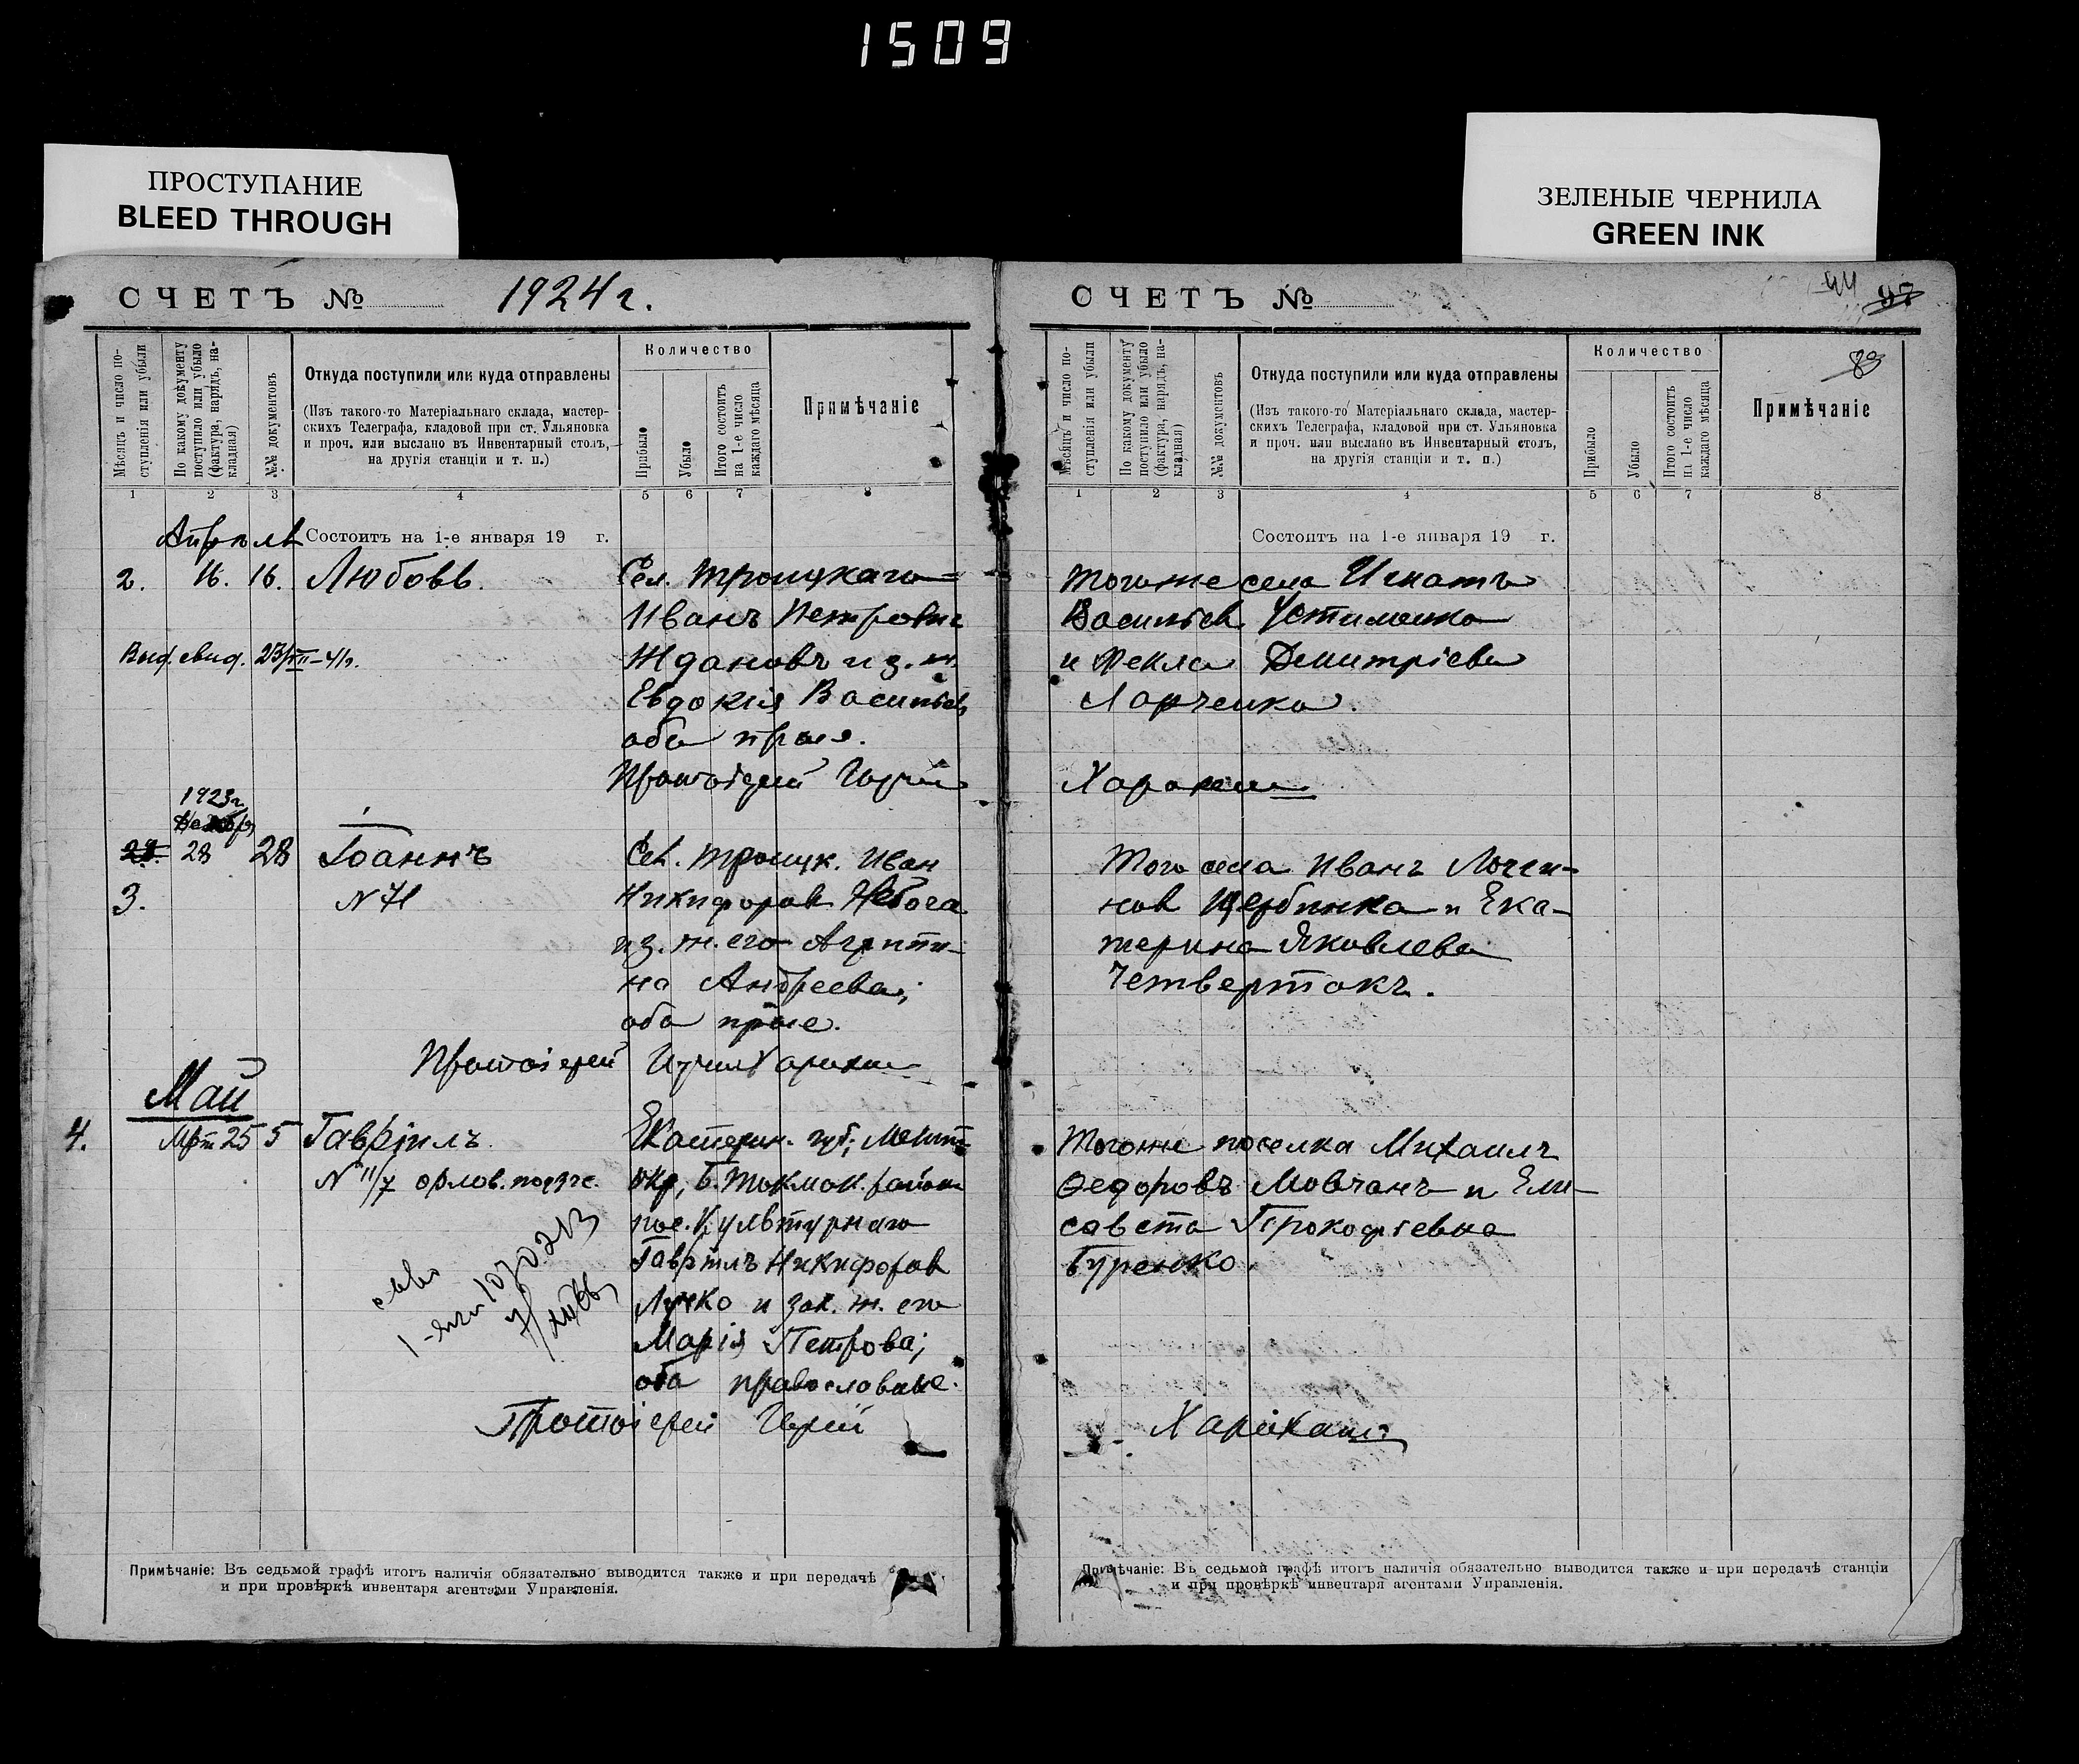 1509
ПРОСТУПАНИЕ
BLEED THROUGH
ЗЕЛЕНЫЕ ЧЕРНИЛА
GREEN INK
СЧЕТЪ №
1924 г.
Мѣсяцъ и число по-
ступленія или убыли
По какому документу
поступило или убыло
(фактура, нарядъ, на-
кладная)
№№ документовъ
Откуда поступили или куда отправлены
(Изъ такого-то Матеріальнаго склада, мастер-
скихъ Телеграфа, кладовой при ст. Ульяновка
и проч. или выслано въ Инвентарный столъ,
на другія станціи и т. п.)
Количество
Прибыло
Убыло
Итого состоитъ
на 1-е число
каждаго мѣсяца
Примѣчаніе
1 2 3 4 5 6 7 8
Апрѣль
Состоитъ на 1-е января 19 г.
2. 16. 16. Любовь.
Сел. Троицкаго
Иванъ Петровъ
Ждановъ и з. ж.
Евдокія Васильев
оба прав.
Протоіерей
Выд. свид.
1923 г.
28 28 Іоаннъ
3. N 71
Сел. Троицк. Иван
Никифоров Небога
и з. ж. его Агрипи-
на Андреева;
оба прав.
Протоіерей
Май
4. Март 25 5 Гавріилъ
N 11/7
Екатерин. губ; Мелит.
окр, Б. Токмак. район
пос. Культурнаго
Гавріилъ Никифоров
Лучко и зак. ж. его
Марія Петрова;
оба православные.
Протоіерей
Примѣчаніе: Въ седьмой графѣ итогъ наличія обязательно выводится также и при передачѣ
и при провѣркѣ инвентаря агентами Управленія.
СЧЕТЪ №
44
83
Мѣсяцъ и число по-
ступленія или убыли
По какому документу
поступило или убыло
(фактура, нарядъ, на-
кладная)
№№ документовъ
Откуда поступили или куда отправлены
(Изъ такого-то Матеріальнаго склада, мастер-
скихъ Телеграфа, кладовой при ст. Ульяновка
и проч. или выслано въ Инвентарный столъ,
на другія станціи и т. п.)
Количество
Прибыло
Убыло
Итого состоитъ
на 1-е число
каждаго мѣсяца
Примѣчаніе
1 2 3 4 5 6 7 8
Состоитъ на 1-е января 19 г.
Тогоже села Игнатъ
Васильев Устименко
и Фекла Димитріева
Харченко.
Того села Иванъ Логги-
нов Щербинка и Ека-
терина Яковлева
Четвертакъ.
Тогоже поселка Михаилъ
Ѳедоровъ Мовчанъ и Ели-
савета Прокофіевна
Буренко.
Примѣчаніе: Въ седьмой графѣ итогъ наличія обязательно выводится также и при передачѣ станціи
и при провѣркѣ инвентаря агентами Управленія.